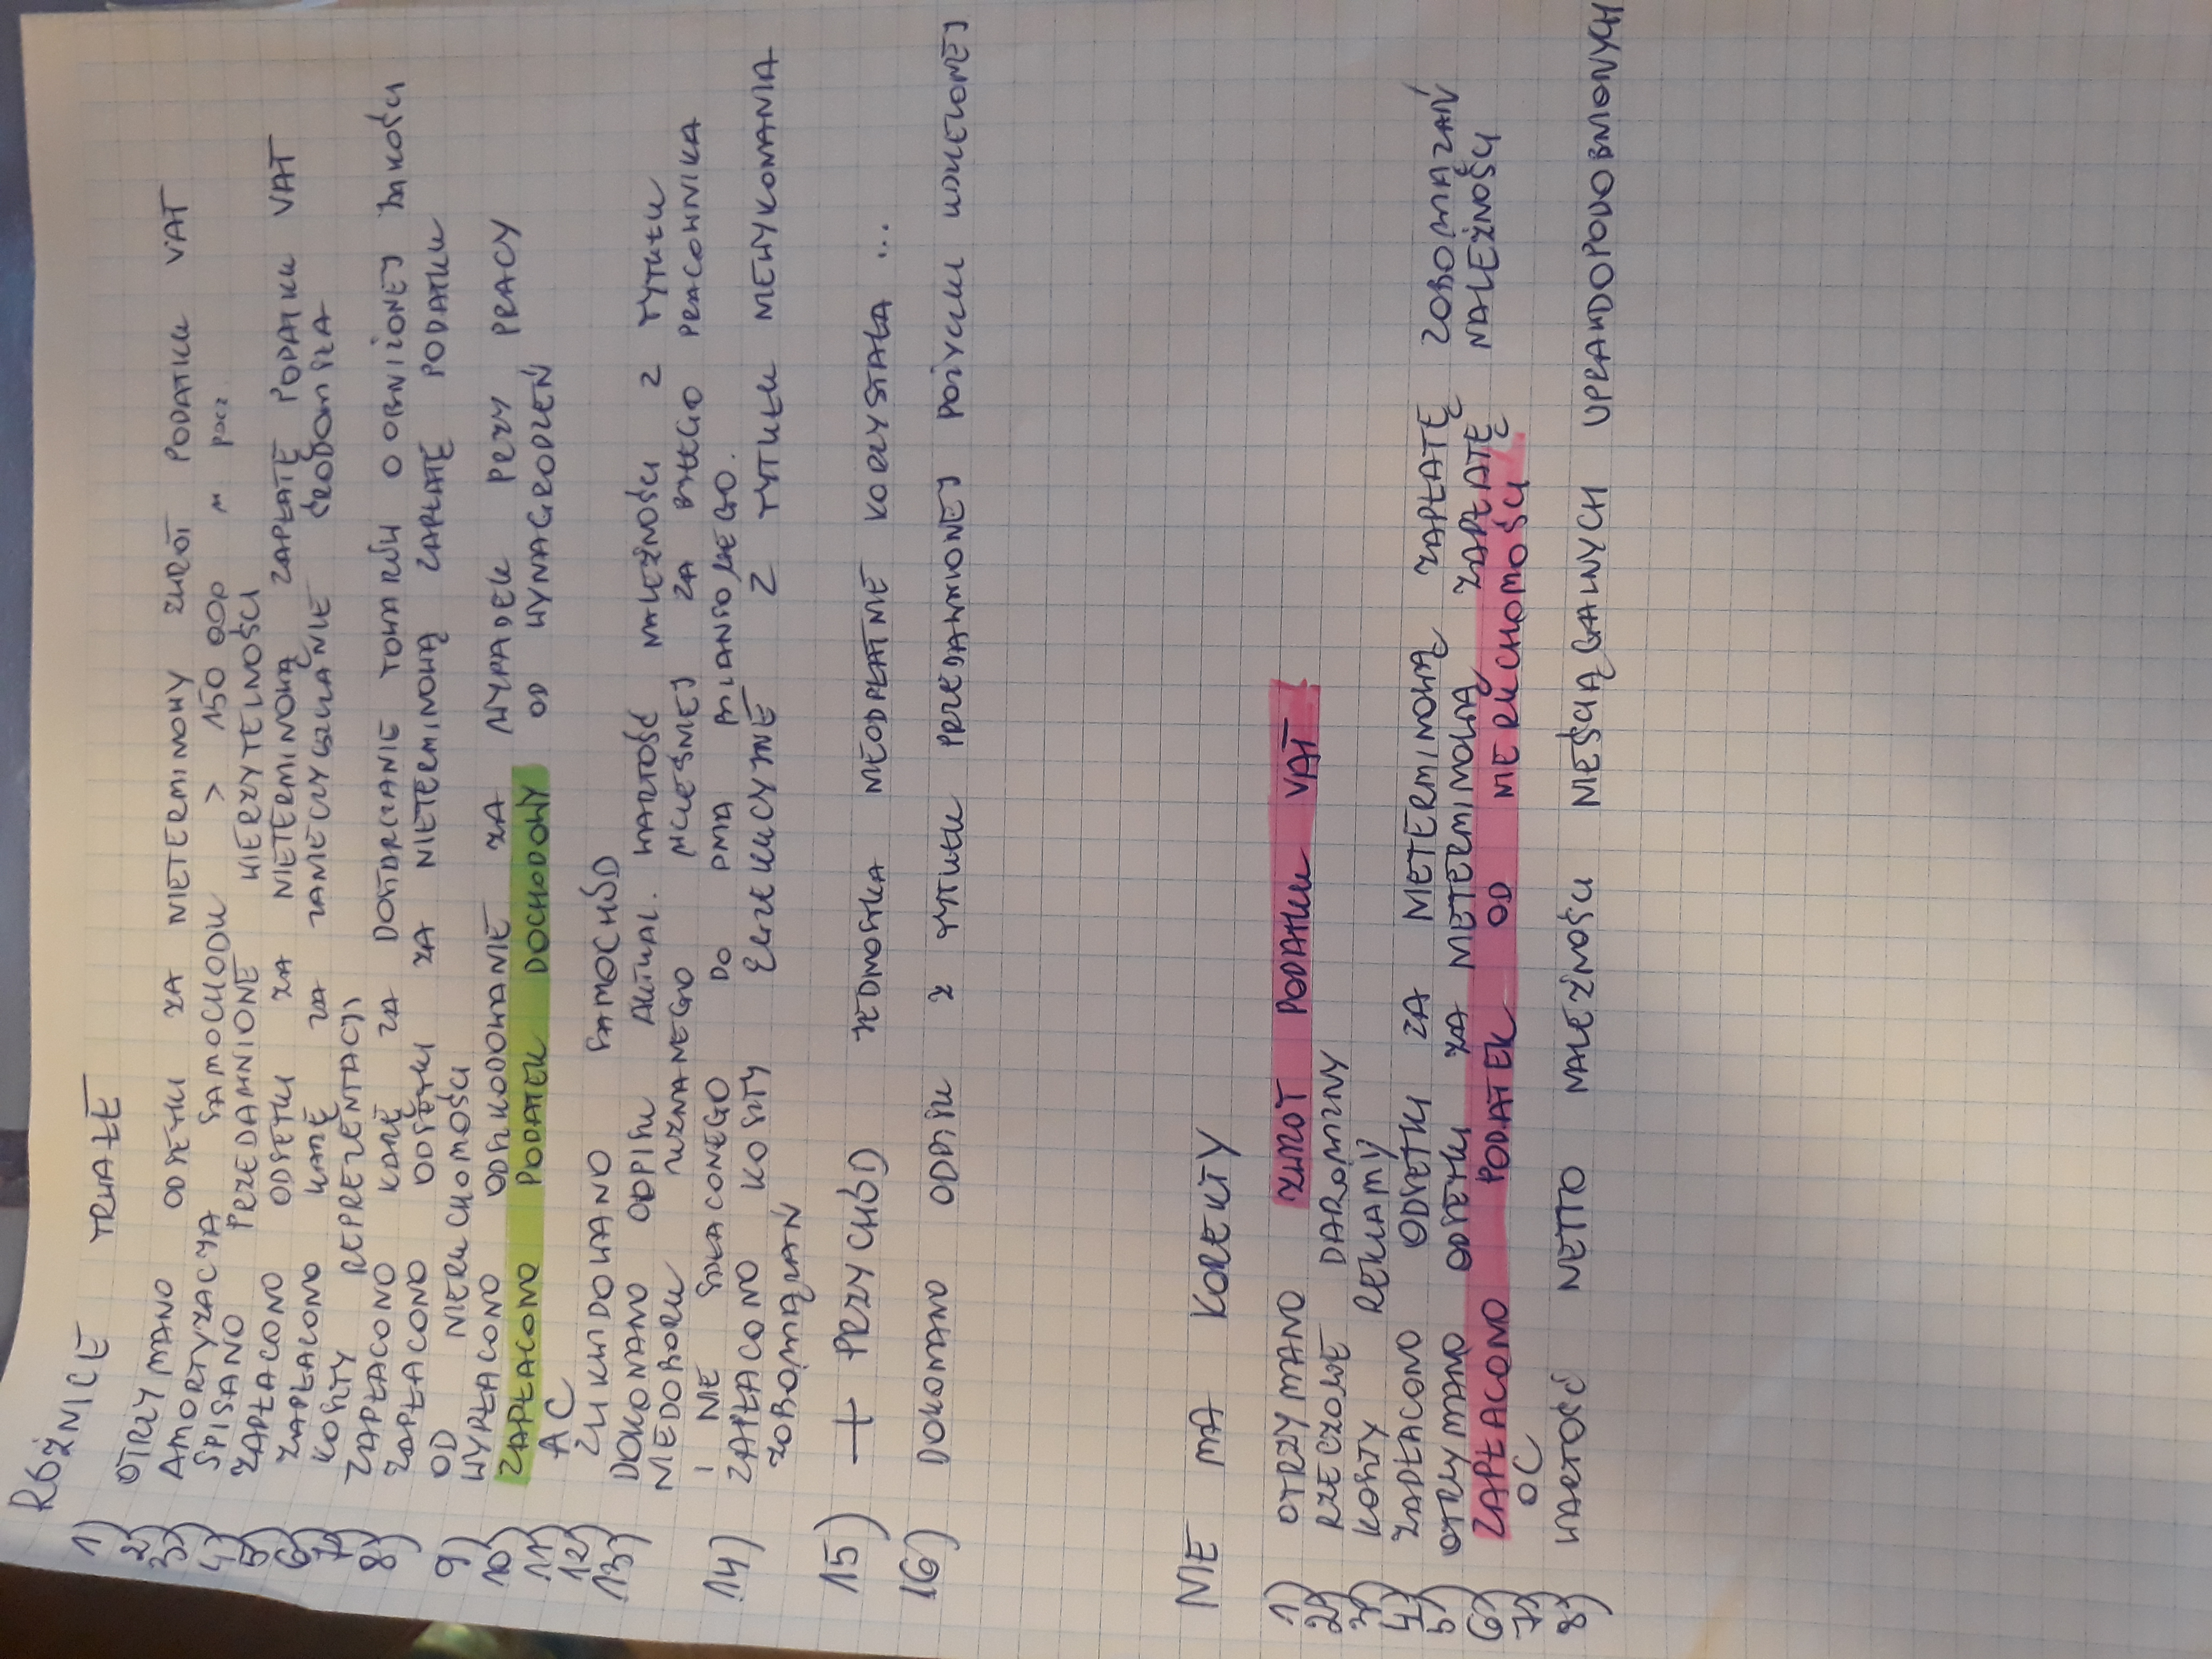 RÓŻNICE TRWAŁE
1) OTRZYMANO ODSETKI ZA NIETERMINOWY ZWROT PODATKU VAT
2) AMORTYZACJA SAMOCHODU > 150 000 w pocz.
3) SPISANO PRZEDAWNIONE WIERZYTELNOŚCI
4) ZAPŁACONO ODSETKI ZA NIETERMINOWĄ ZAPŁATĘ PODATKU VAT
5) ZAPŁACONO KARĘ ZA ZANIECZYSZCZANIE ŚRODOWISKA
6) KOSZTY REPREZENTACJI
7) ZAPŁACONO KARĘ ZA DOSTARCZANIE TOWARÓW O OBNIŻONEJ JAKOŚCI
8) ZAPŁACONO ODSETKI ZA NIETERMINOWĄ ZAPŁATĘ PODATKU
OD NIERUCHOMOŚCI
9) WYPŁACONO ODSZKODOWANIE ZA WYPADEK PRZY PRACY
10) ZAPŁACONO PODATEK DOCHODOWY OD WYNAGRODZEŃ
11) AC
12) ZLIKWIDOWANO SAMOCHÓD
13) DOKONANO ODPISU AKTUAL. WARTOŚĆ NALEŻNOŚCI Z TYTUŁU
NIEDOBORU UZNANEGO WCZEŚNIEJ ZA BYŁEGO PRACOWNIKA
I NIE SPŁACONEGO DO DNIA BILANSOWEGO.
14) ZAPŁACONO KOSZTY EGZEKUCYJNE Z TYTUŁU NIEWYKONANIA
ZOBOWIĄZAŃ
15) + PRZYCHÓD JEDNOSTKA NIEODPŁATNIE KORZYSTAŁA ...
16) DOKONANO ODPISU Z TYTUŁU PRZEDAWNIONEJ POŻYCZKI UDZIELONEJ
NIE MA KOREKTY
1) OTRZYMANO ZWROT PODATKU VAT
2) RZECZOWE DAROWIZNY
3) KOSZTY REKLAMY
4) ZAPŁACONO ODSETKI ZA NIETERMINOWĄ ZAPŁATĘ ZOBOWIAZAŃ
5) OTRZYMANO ODSETKI ZA NIETERMINOWĄ ZAPŁATĘ NALEŻNOŚCI
6) ZAPŁACONO PODATEK OD NIERUCHOMOŚCI
7) OC
8) WARTOŚĆ NETTO NALEŻNOŚCI NIEŚCIĄGALNYCH UPRAWDOPODOBNIONYCH